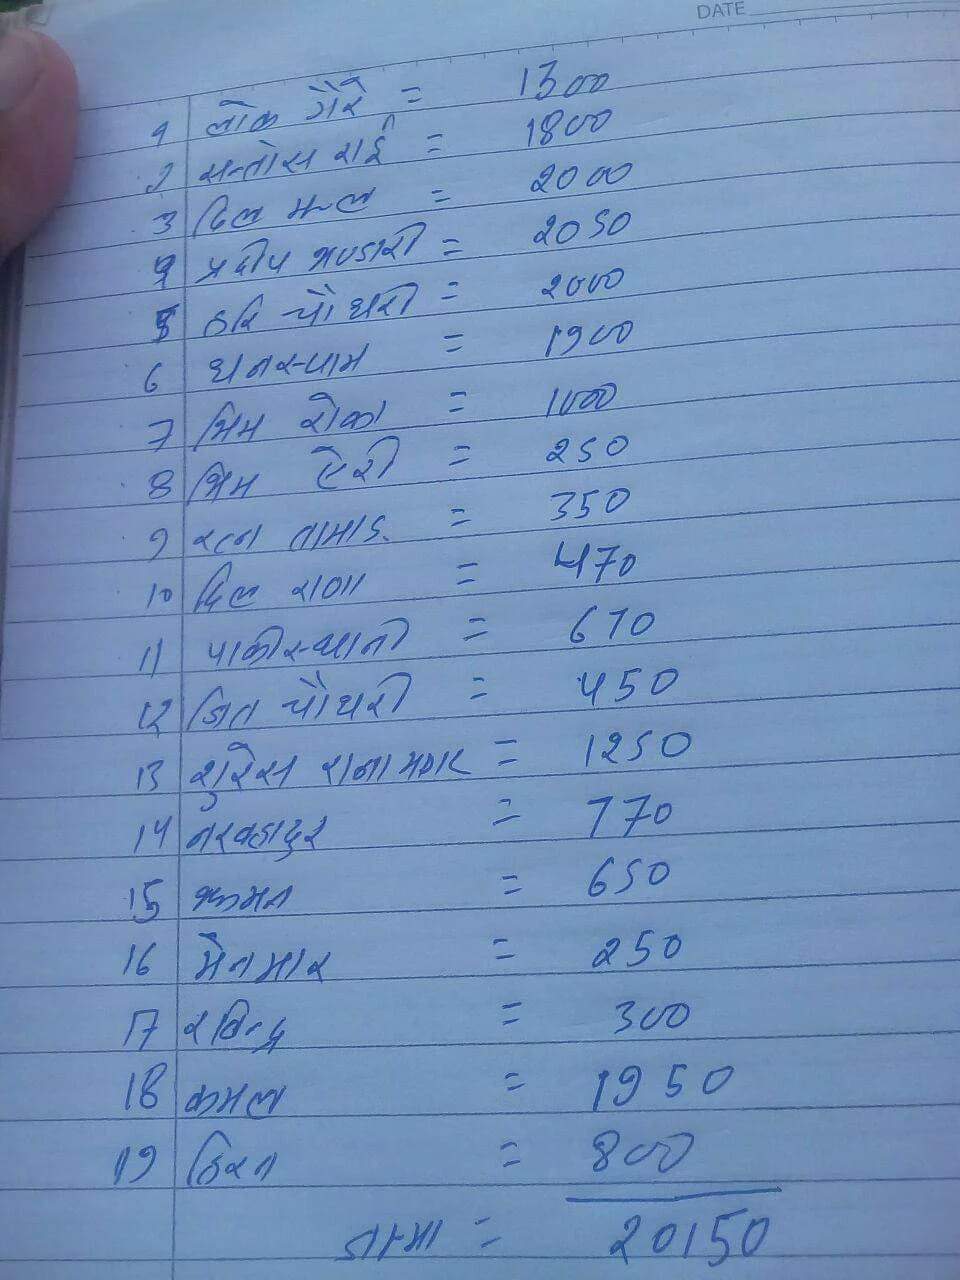 DATE
१ लोक गैरे = 1300
२ सन्तोस राई = 1800
3 दिल मल्ल = 2000
४ प्रदीप भण्डारी = 2050
5 हरि चौधरी = 2000
6 घनस्याम = 1900
7 भिम रोका = 1000
8 भिम = 250
9 रत्न तामाङ = 350
10 दिल राना = 470
11 = 670
12 जित चौधरी = 450
13 राना मगर = 1250
14 नरबहादुर = 770
15 = 650
16 = 250
17 रविन्द्र = 300
18 कमल = 1950
19 किरन = 800
जम्मा = 20150